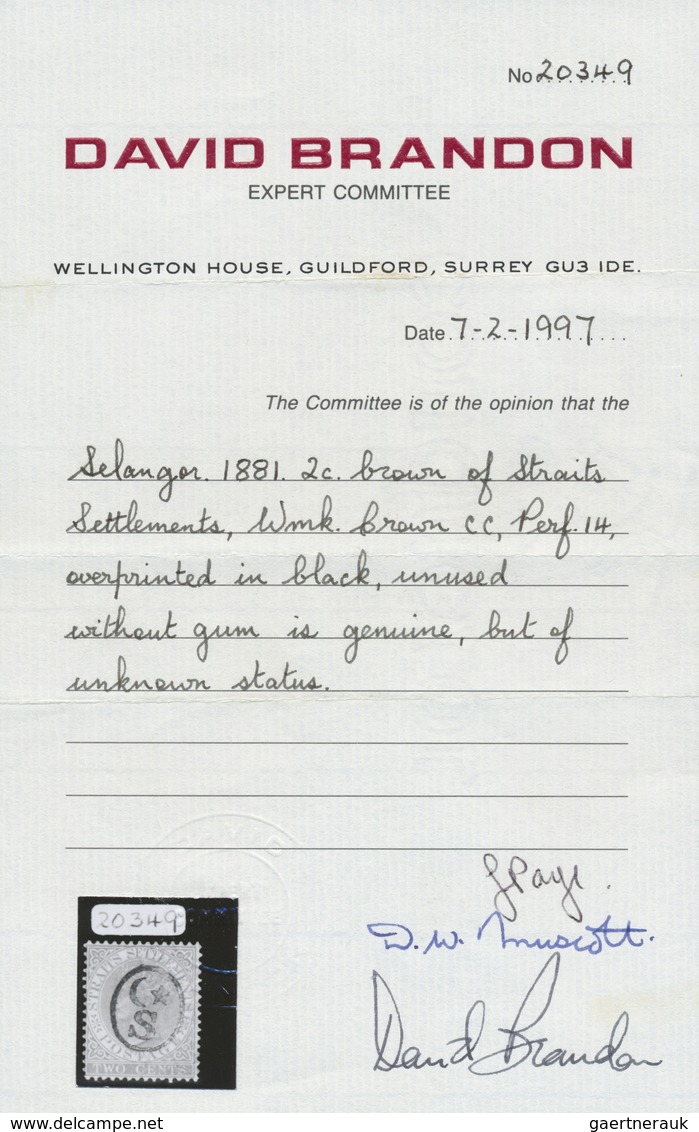 No 20349
DAVID BRANDON
EXPERT COMMITTEE
WELLINGTON HOUSE, GUILDFORD, SURREY GU3 IDE.
Date 7-2-1997
The Committee is of the opinion that the
Selangor. 1881. 2c. brown of Straits
Settlements, Wmk. Crown CC, Perf. 14,
overprinted in black, unused
without gum is genuine, but of
unknown status.
J Page.
D. W. Muscott.
20349
STRAITS SETTLEMENTS
C
S
POSTAGE
TWO CENTS
David Brandon
gaertnerauk @ delcampe.net